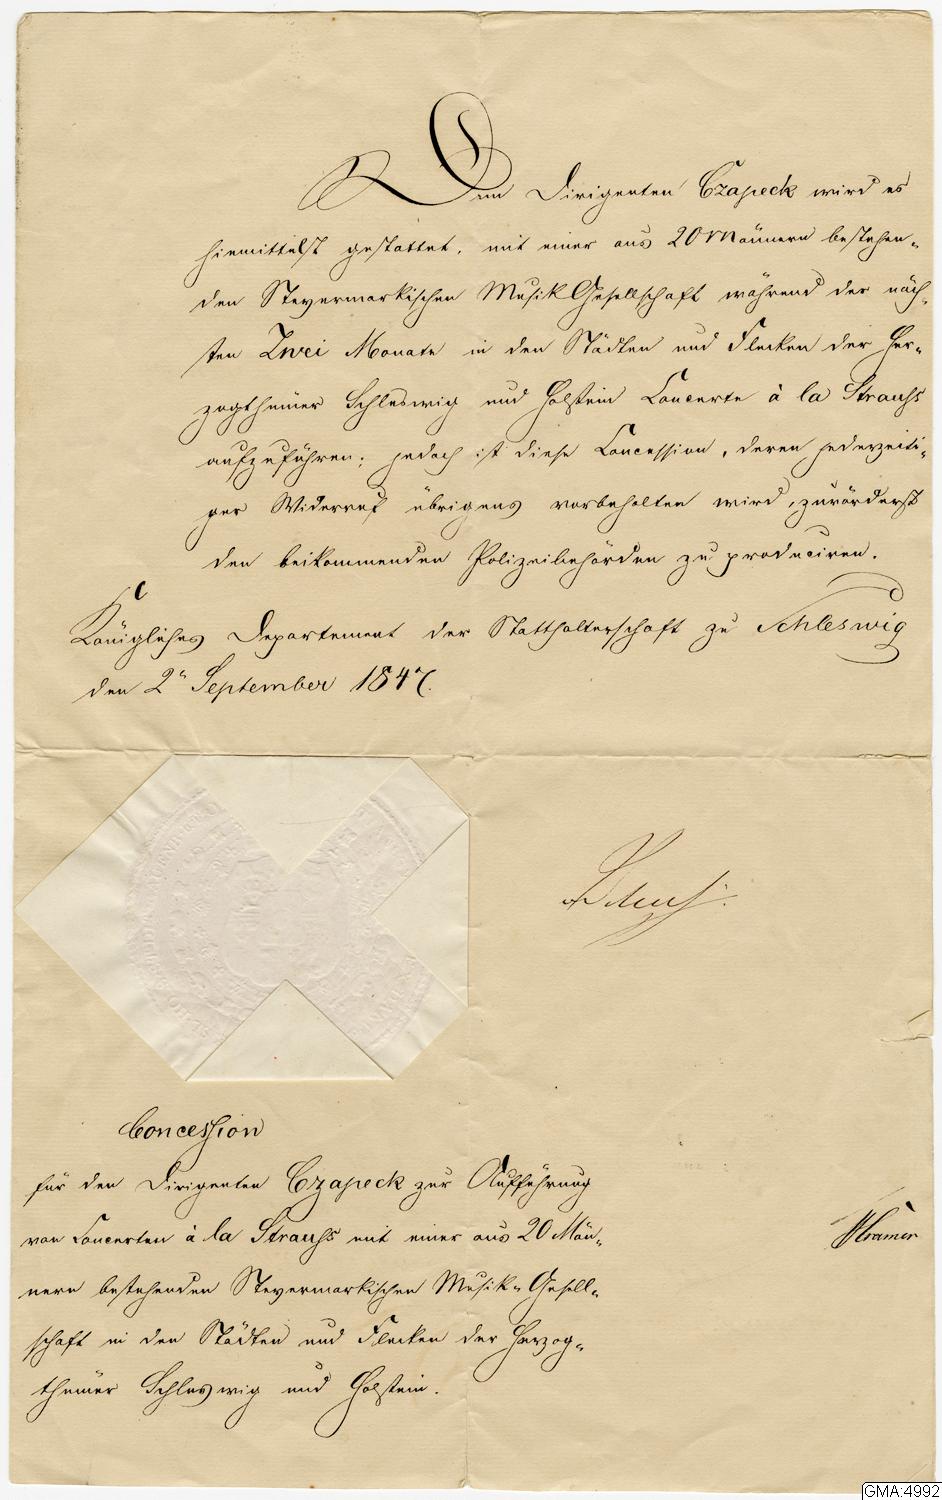 Dem Dirigenten Czapeck wird es
hiemittelst gestattet, mit einer aus 20 Männern bestehen-
den Steyermarkischen Musik Gesellschaft während der näch-
sten Zwei Monate in den Städten und Flecken der Her-
zogthümer Schleswig und Holstein Concerte à la Strauss
aufzuführen; jedoch ist diese Concession, deren jederzeiti-
ger Widerruf übrigens vorbehalten wird, zuvörderst
den beikommenden Polizeibehörden zu produciren.
Königliches Departement der Statthalterschaft zu Schleswig
den 2n September 1847.
Concession
für den Dirigenten Czapeck zur Aufführung
von Concerten à la Strauss mit einer aus 20 Män-
nern bestehenden Steyermarkischen Musik-Gesell-
schaft in den Städten und Flecken der Herzog-
thümer Schleswig und Holstein.
Kramer
GMA:4992